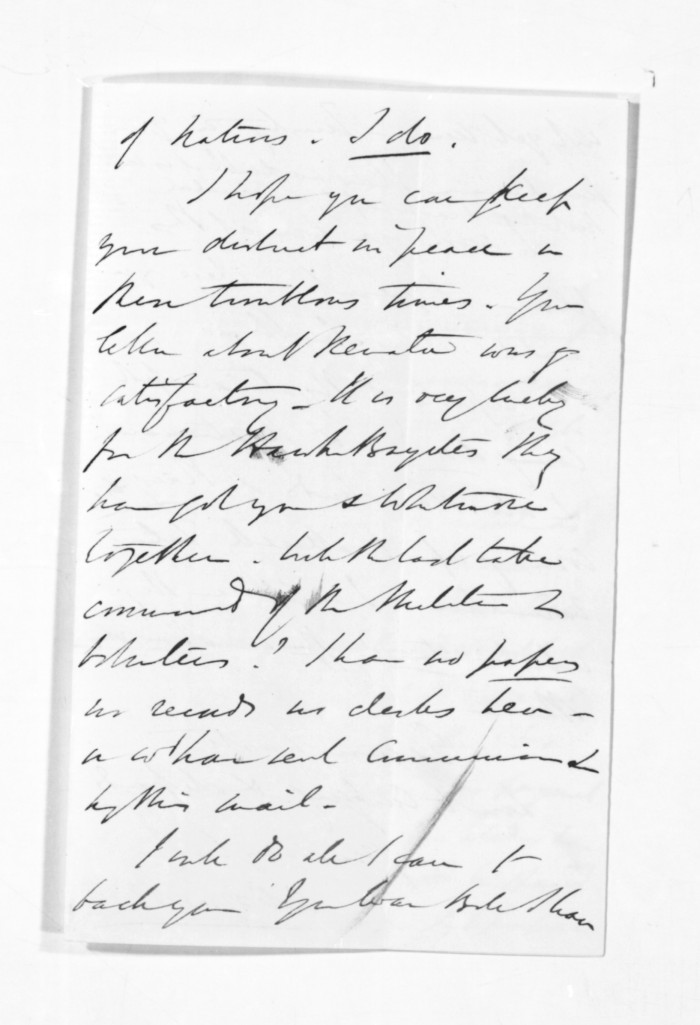 of natives. I do.
I hope you can keep
your district in peace in
these troublous times. Your
letter about Rewata was
satisfactory - It is very lucky
for the Hawke Bayites they
have got you & Whitmore
together. Will the last take
command of the Militia &
Volunteers? I have no papers
no records no clerks here -
or wd have sent Commission
by this mail -
I will do all I can to
back you